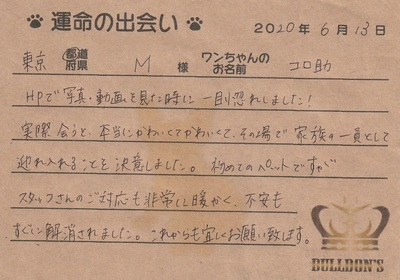 運命の出会い 2020年6月13日
東京 都道府県 M 様 ワンちゃんのお名前 コロ助
HPで写真・動画を見た時に一目惚れしました!
実際会うと、本当にかわいくてかわいくて、その場で家族の一員として
迎え入れることを決意しました。初めてのペットですが
スタッフさんのご対応も非常に暖かく、不安も
すぐに解消されました。これからも宜しくお願い致します。
BULLDON'S